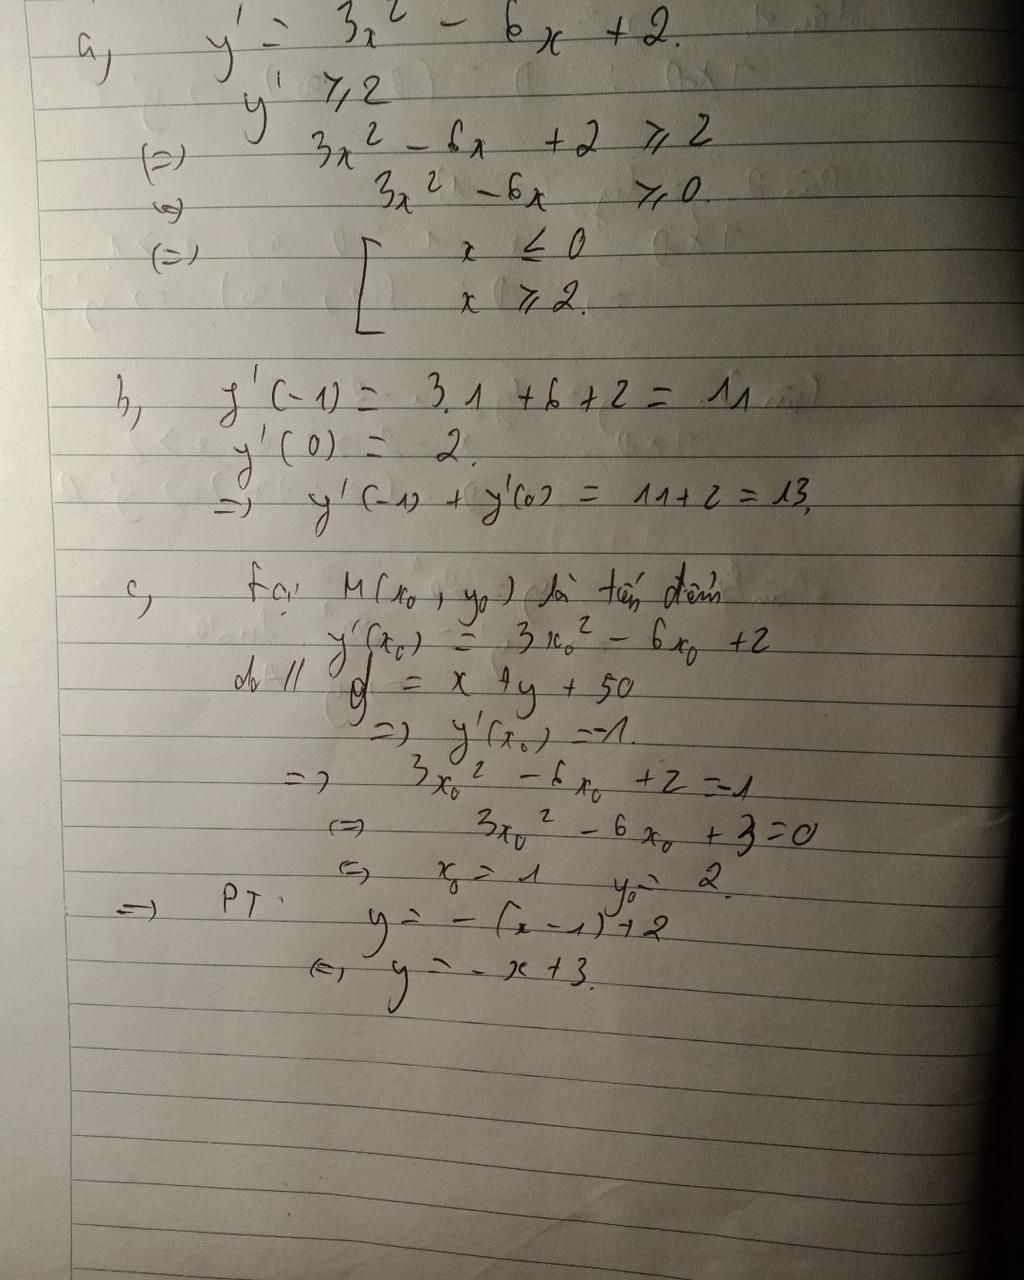 a, y' = 3x² - 6x + 2.
y' ⩾ 2
(=) 3x² - 6x + 2 ⩾ 2
(=) 3x² - 6x ⩾ 0.
(=) [ x ≤ 0
x ⩾ 2.
b, y'(-1) = 3.1 + 6 + 2 = 11
y'(0) = 2.
=) y'(-1) + y'(0) = 11 + 2 = 13,
c, M(x₀, y₀) là tiếp điểm
y'(x₀) = 3x₀² - 6x₀ + 2
do // d = x + y + 50
=) y'(x₀) = -1.
=) 3x₀² - 6x₀ + 2 = -1
(=) 3x₀² - 6x₀ + 3 = 0
(=) x₀ = 1 y₀ = 2.
=) PT. y = - (x - 1) + 2
(=) y = - x + 3.